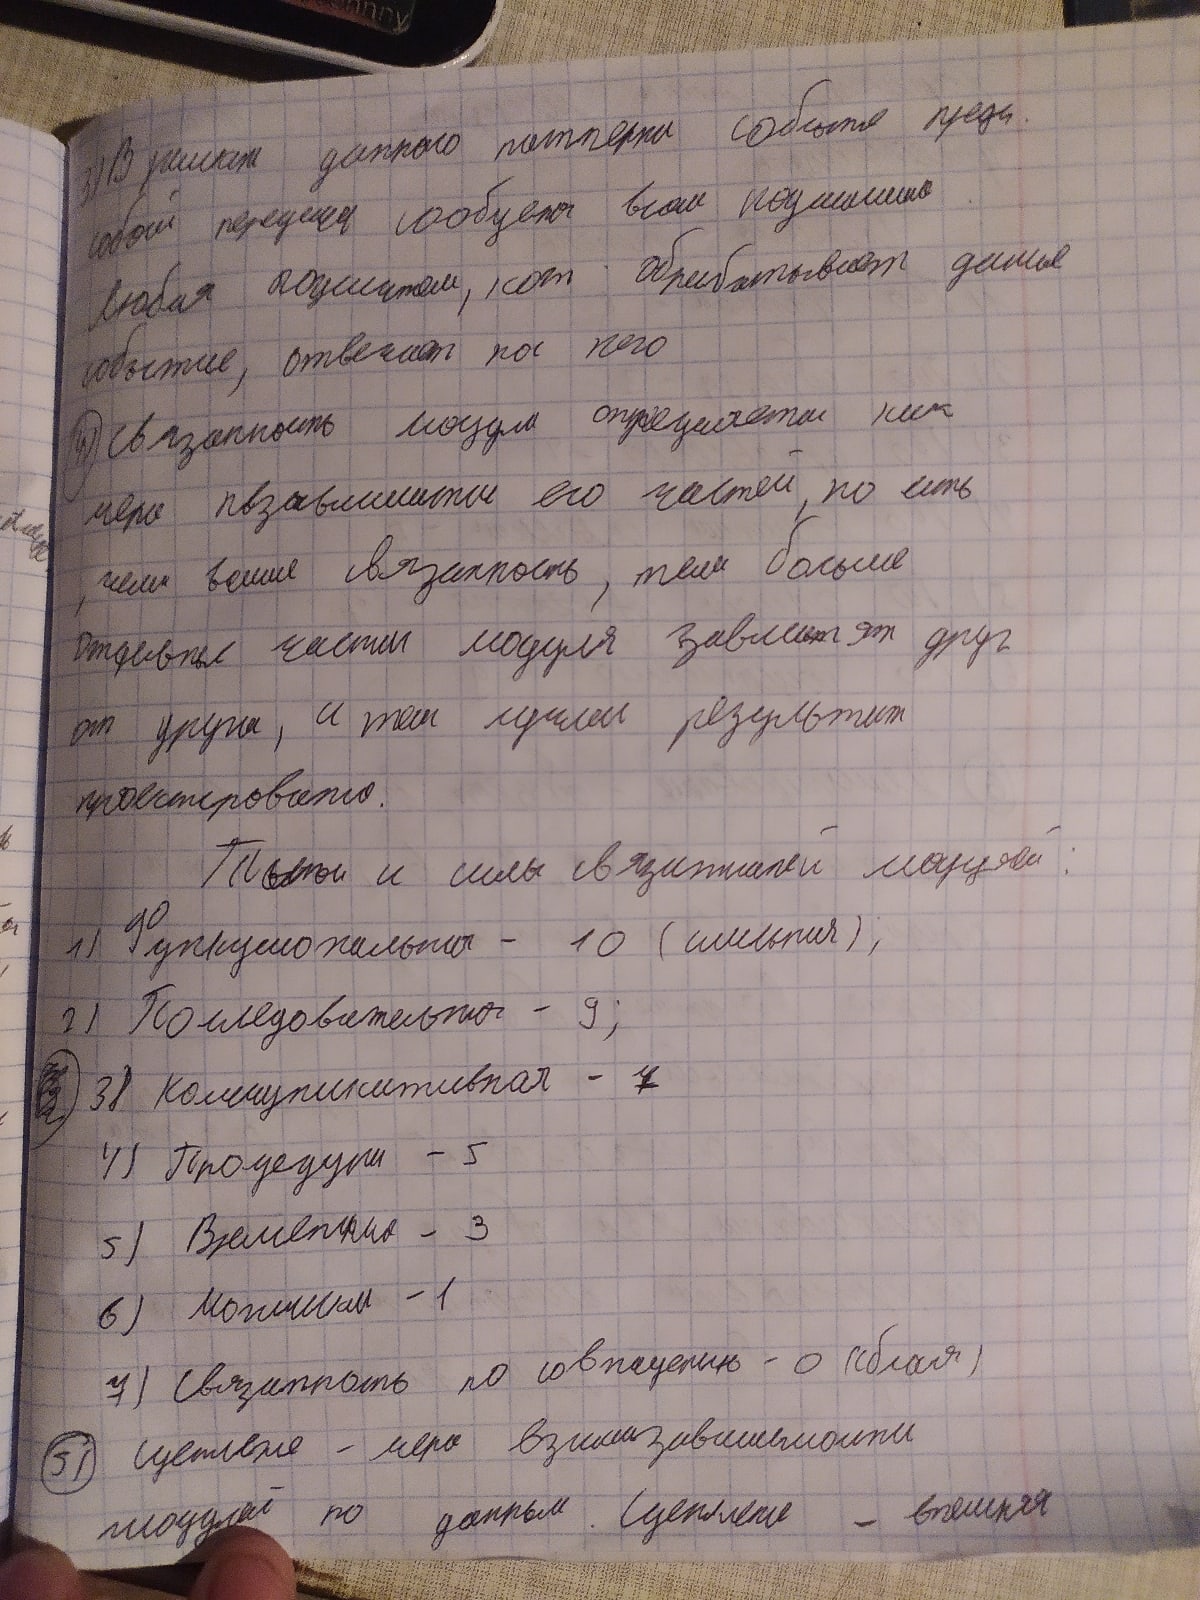 3) В рамках данного паттерна событие предс.
собой передача сообщения всем подсистемам
Любая подсистема, кот. обрабатывает данное
событие, отвечает на него
4) Связанность модуля определяется как
мера взаимозависимости его частей, то есть
, чем выше связанность, тем больше
отдельные части модуля зависят друг
от друга, и тем лучше результат
проектирования.
Типы и силы связанностей модулей:
1) Функциональная - 10 (сильная);
2) Последовательная - 9;
3) Коммуникативная - 7
4) Процедурн - 5
5) Временная - 3
6) Логическая - 1
7) Связанность по совпадению - 0 (слабая)
5) Сцепление - мера взаимозависимости
модулей по данным. Сцепление - внешняя